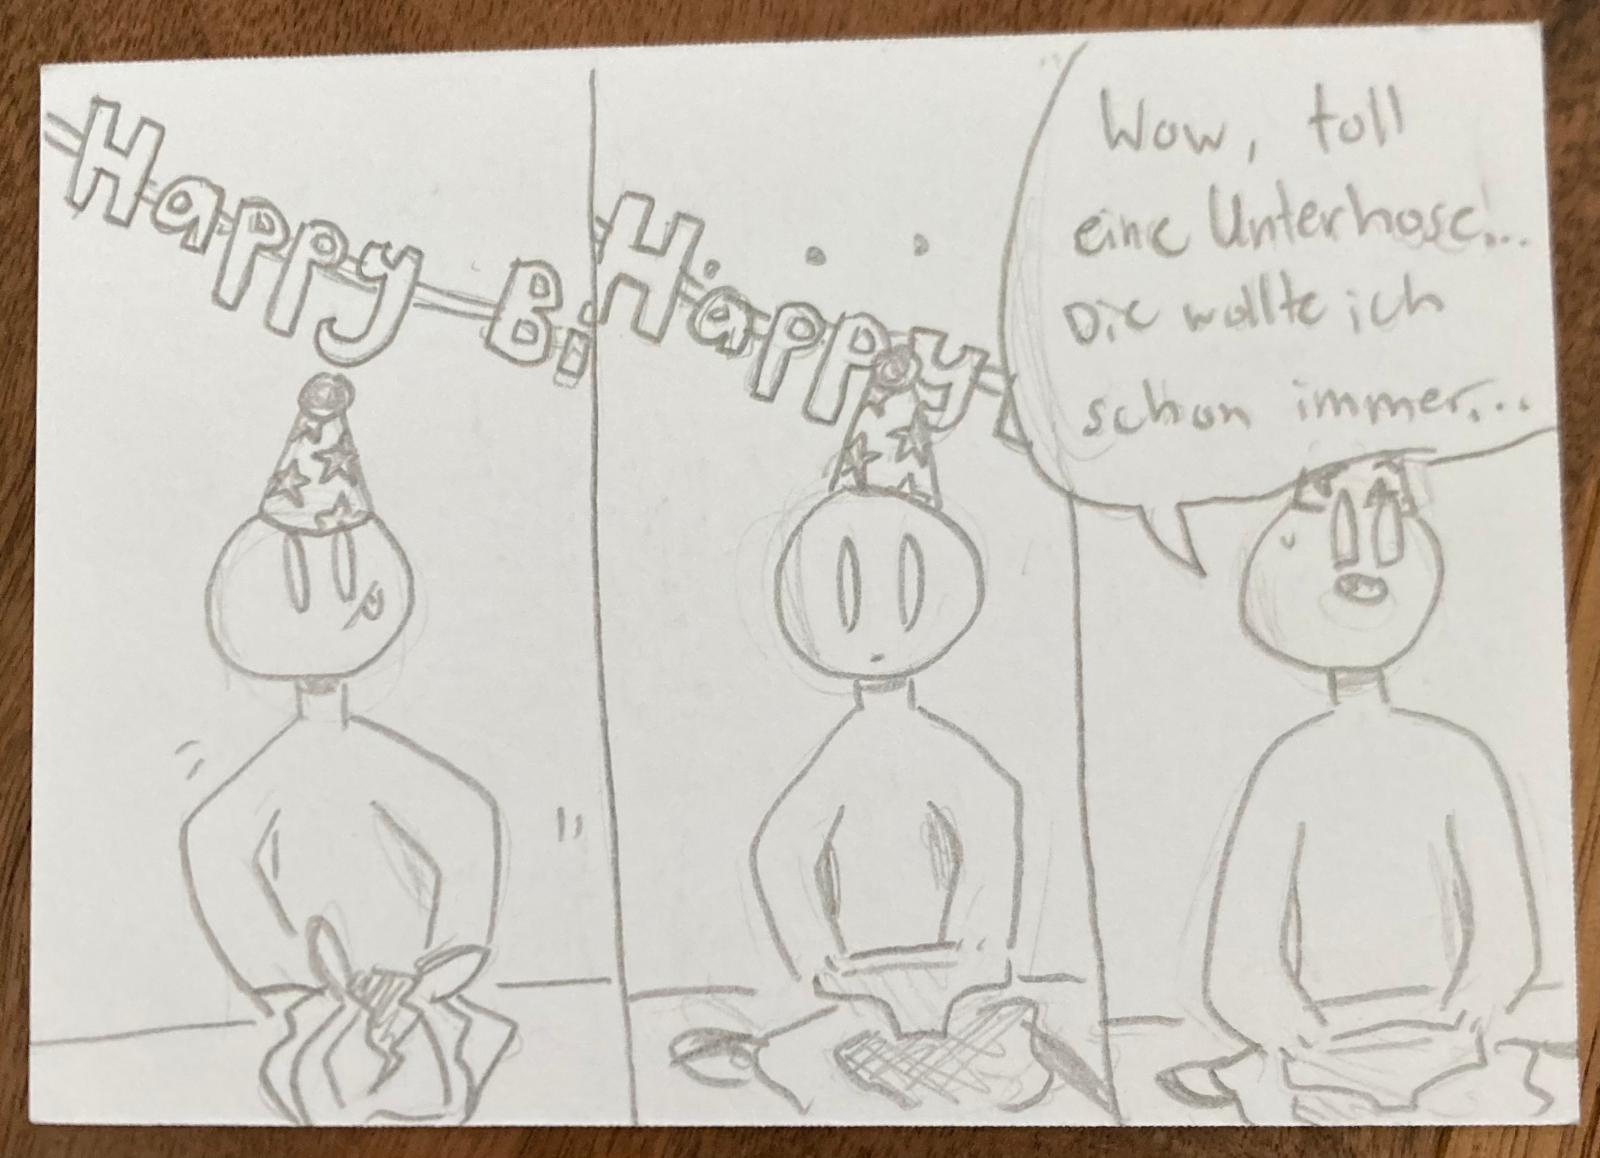 Happy Bi
Happy
Wow, toll
eine Unterhose!...
Die wollte ich
schon immer...